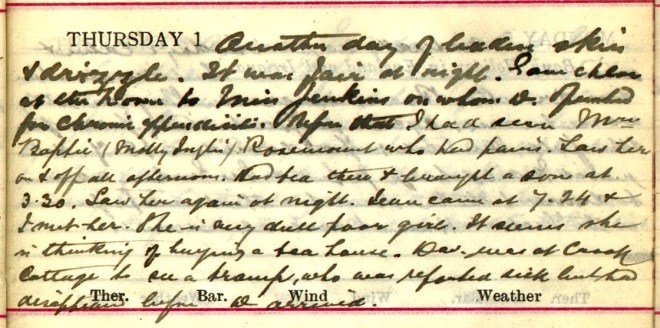 THURSDAY 1 Another day of leaden skies
& drizzle. It was fair at night. I gave chlor
at the Home to Miss Jenkins on whom D. operated
for Chronic appendicitis. Before that I had seen Mrs
(Molly Inglis) Rosemount who had pains. Saw her
on & off all afternoon. Had tea there & brought a son at
3.30. Saw her again at night. Jean came at 7.24 &
I met her. She is very dull poor girl. It seems she
is thinking of buying a tea house. Dav. was at Crook
Cottage to see a tramp, who was reported sick but had
disappeared before D arrived.
Ther. Bar. Wind Weather